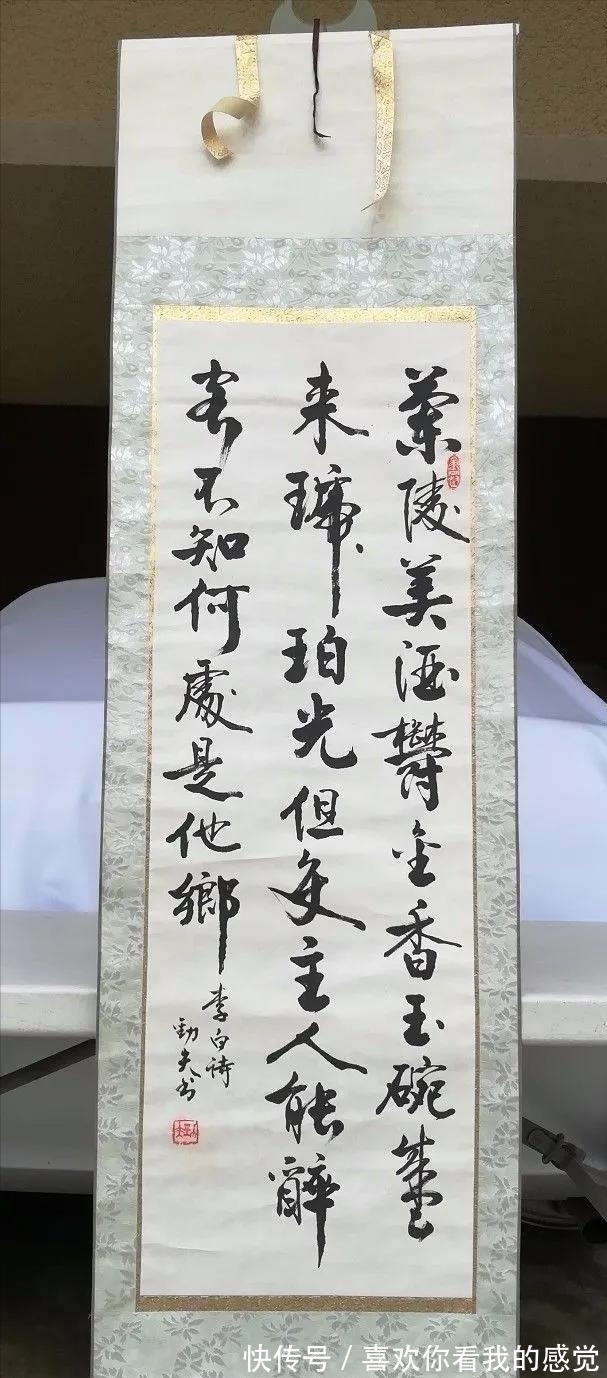 蘭陵美酒鬱金香玉碗盛
来琥珀光但使主人能醉
客不知何處是他鄉
李白诗
勁夫书
快传号 / 喜欢你看我的感觉